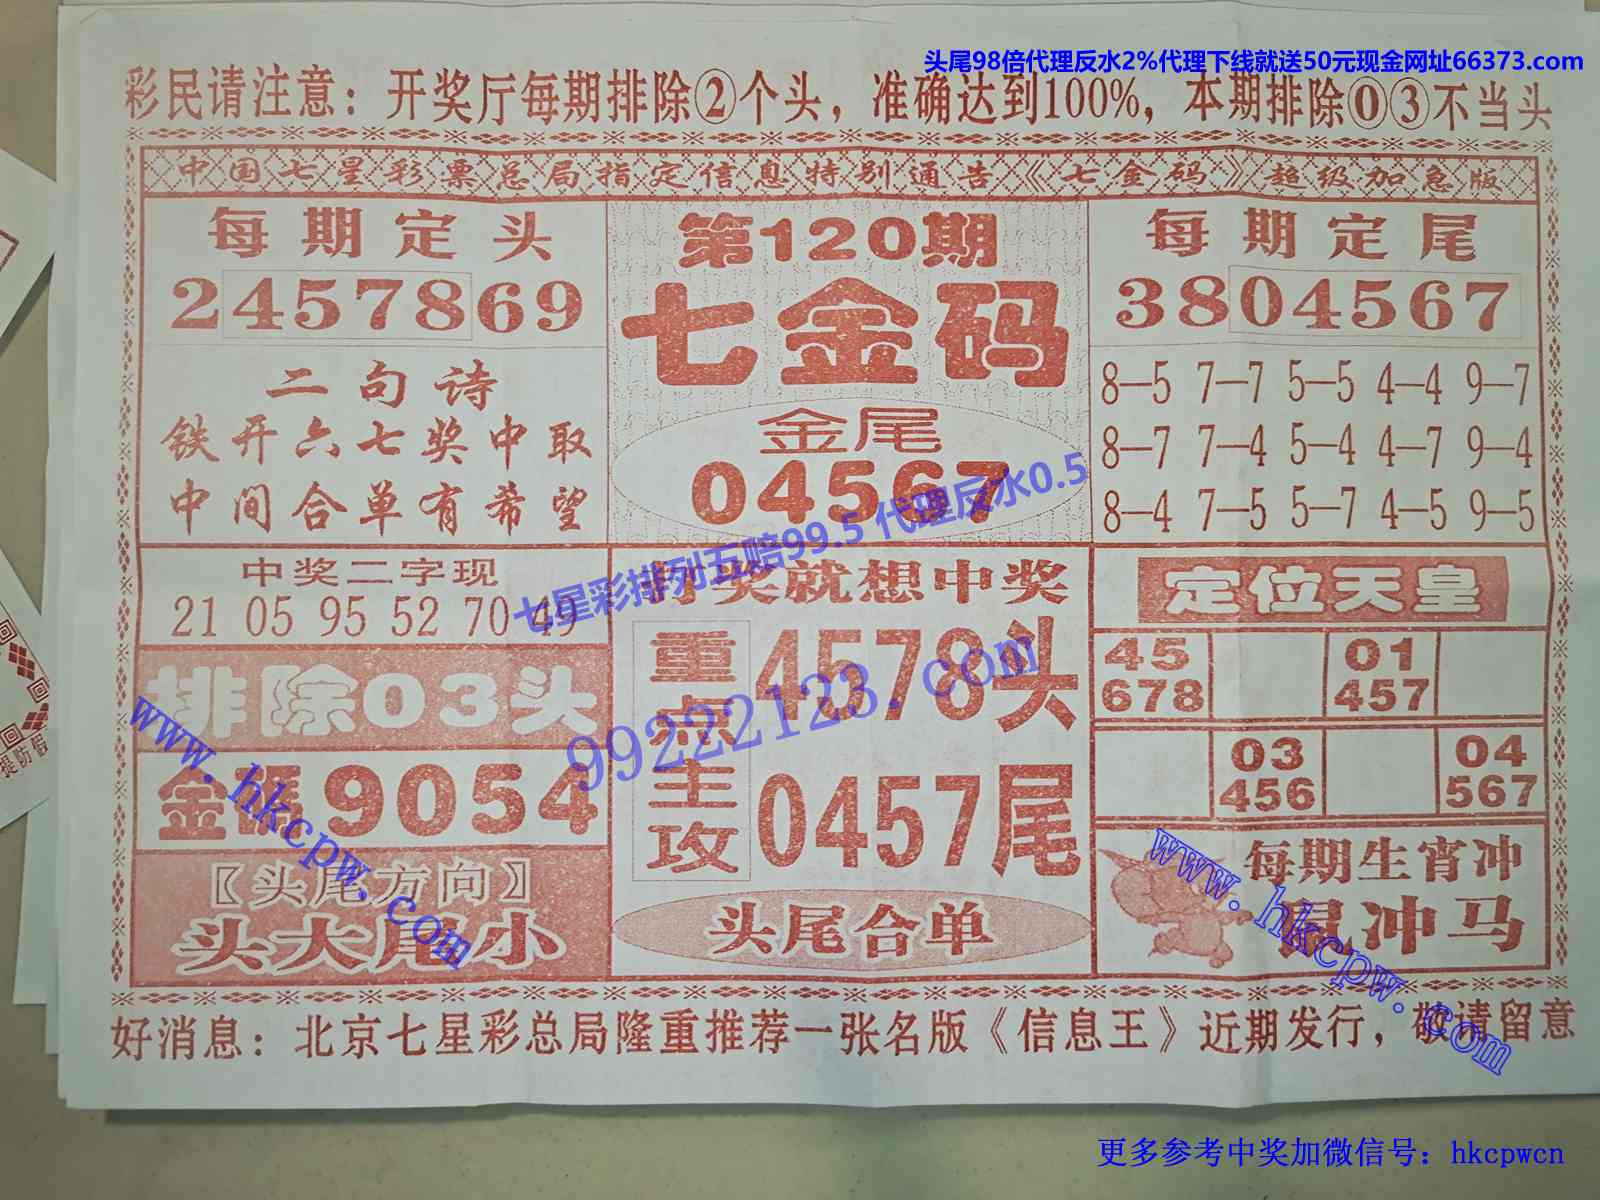 头尾98倍代理反水2%代理下线就送50元现金网址66373.com
彩民请注意：开奖厅每期排除②个头，准确达到100%，本期排除⓪③不当头
中国七星彩票总局指定信息特别通告《七金码》超级加急版
每期定头
2457869
二句诗
铁开六七奖中取
中间合单有希望
第120期
七金码
金尾
04567
每期定尾
3804567
8—5 7—7 5—5 4—4 9—7
8—7 7—4 5—4 4—7 9—4
8—4 7—5 5—7 4—5 9—5
七星彩排列五赔99.5 代理反水0.5
中奖二字现
21 05 95 52 70 49
排除03头
金碼9054
【头尾方向】
头大尾小
奖就想中奖
重点主攻
4578头
0457尾
头尾合单
99222123.com
定位天皇
45
678
01
457
03
456
04
567
每期生肖冲
冲马
www.hkcpw.com
www.hkcpw.com
好消息：北京七星彩总局隆重推荐一张名版《信息王》近期发行，敬请留意
更多参考中奖加微信号：hkcpwcn
提防假